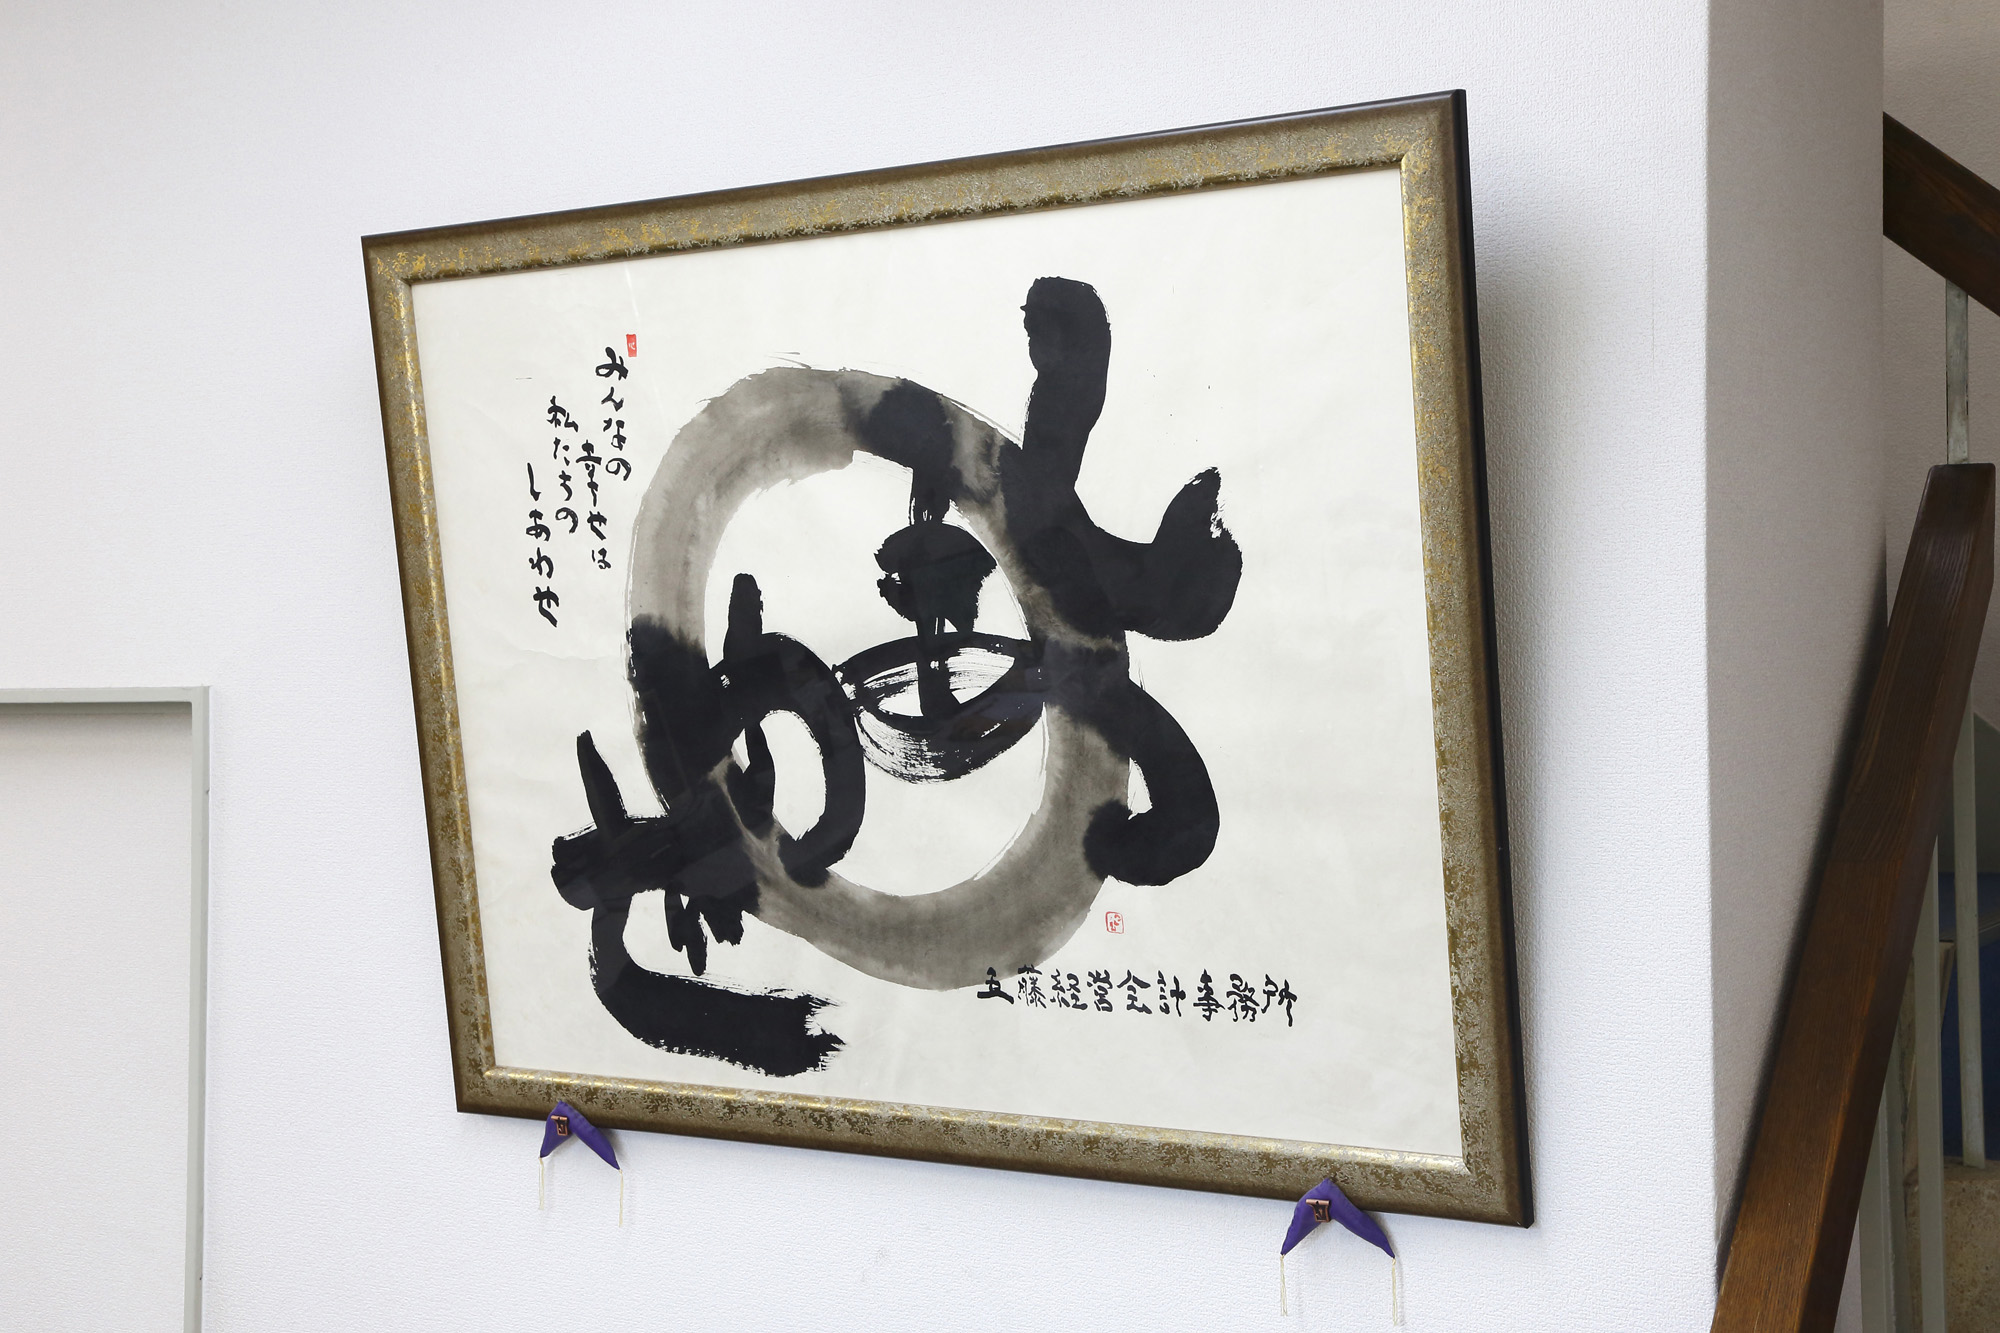 しあわせ
みんなの
幸せは
私たちの
しあわせ
五藤経営会計事務所